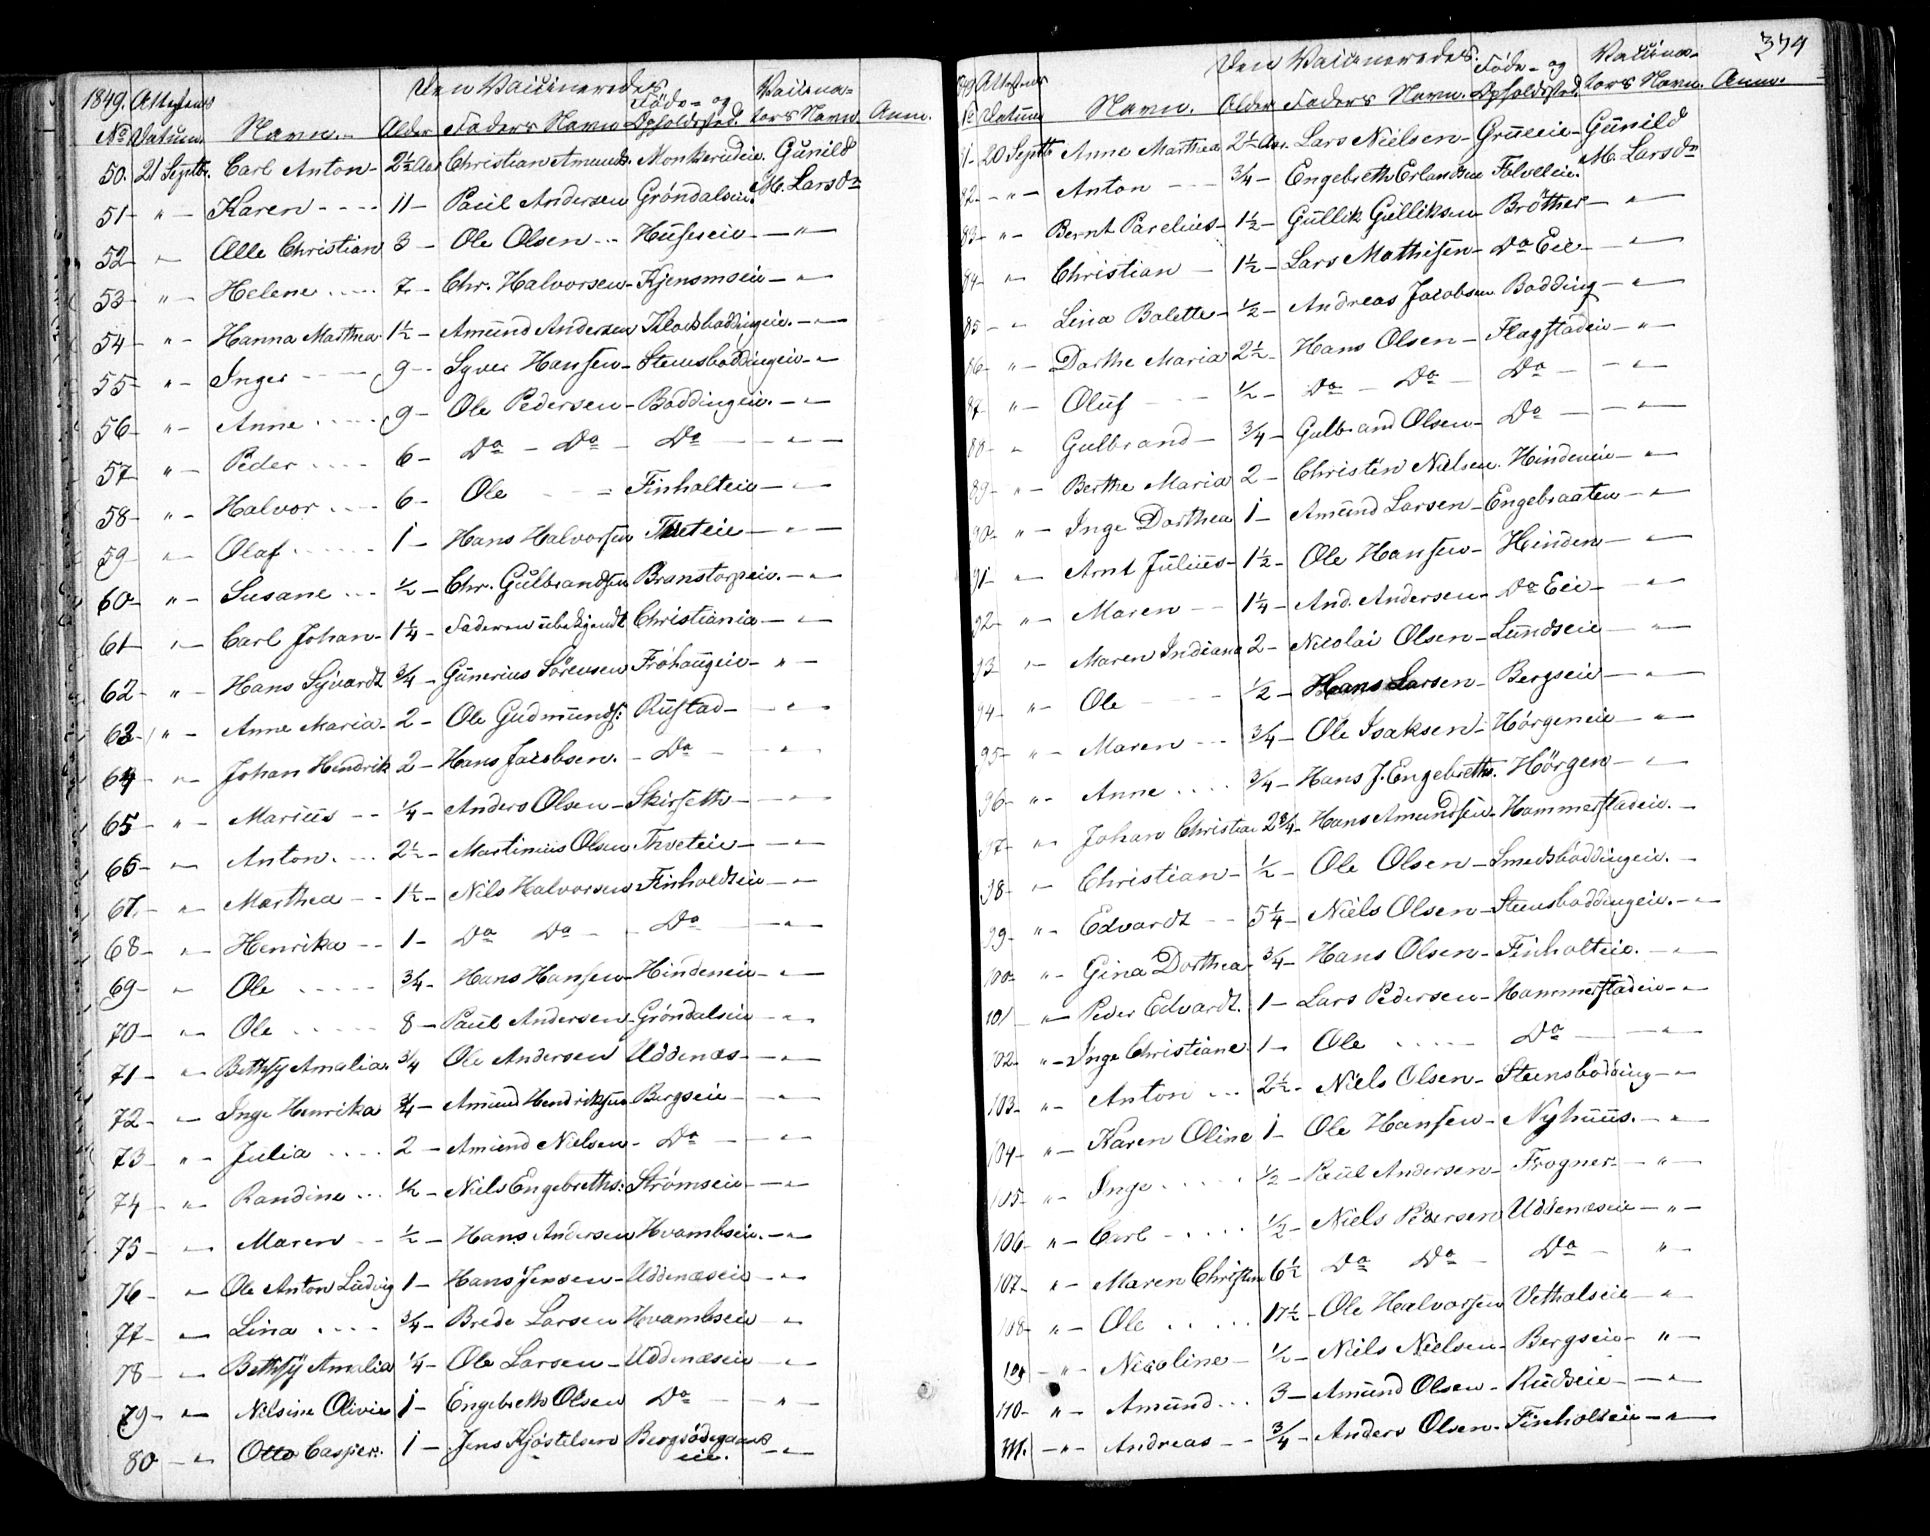 1849. Attestens Den Vaccineredes Vaccina-
No Datum. Navn. Alder Faders Navn Føde- og Opholdssted. tors Navn Anm.
50. 21 Septbr. Carl Anton - 2½ Aar Christian Amunds. Monkerudeie. Gunild
51 - " - Karen - - - - 11 - Paul Andersen Grøndalseie. M. Larsdr
52 " - Olle Christian 3 - Ole Olsen - - Huseseie - " -
53 - " - Helene - - - - 7 - Chr. Halvorsen - Kjensmoeie - " -
54 - " - Hanna Marthea 1½ - Amund Andersen Klocksbøddingeie. - " -
55 - " - Inger - - - 9 - - Syver Hansen - Steensbøddingeie - " -
56 - " - Anne - - - - 9 - Ole Pedersen - Bøddingeie. - " -
57 " - Peder - - - - 6 - Do - Do - Do - " -
58 - " - Halvor - - - 6 - Ole - - = Finholteie - " -
59 " - Olaf - - - - 1 - Hans Halvorsen Tveteie - " -
60 - " - Susane - - - ½ - Chr. Gulbrandsen Branstorpeie. - " -
61 " - Carl Johan - 1¼ - Faderen ubekjendt Christiania - " -
62 - " - Hans Syvardt ¾ - Gunerius Sörensen Frøhaugeie - " -
63 - " - Anne Maria - 2 - Ole Gudmunds: Rustad - - " -
64 - " - Johan Hendrik 2 - Hans Jacobsen. - Do - " -
65 - " - Marius - - ¼ - Anders Olsen - Skirseth - - " -
66 - " - Anton. - - - 2½ - Martinius Olsen Thveteie - " -
67. - " - Marthea - - 1½ - Nils Halvorsen Finholdteie - " -
68 - " - Henrika - - 1 - Do Do - Do - " -
69 - " - Ole - - - - - ¾ - Hans Hansen - Hindeneie - " -
70 - " - Ole - - - - - 8 - Paul Andersen - Grøndalseie - " -
71 - " - Bethsy Amalia. ¾ Ole Andersen Uddenæs - - " -
72 - " - Inge Henrika ¾ - Amund Hendriksen Bergseie - - " -
73 - " - Julia - - - - 2 - Amund Nielsen - Do - " -
74 - " - Randine - - - ½ - Niels Engebreths: Strømseie - " -
75 - " - Maren - - ½ - Hans Andersen Hvambseie. - " -
76 - " - Ole Anton Ludvig 1 - Hans Jensen - Uddenæseie - " -
77 - " - Lina - - - - ¾ - Brede Larsen Hvambseie - " -
78 - " - Bethsy Amalia ¼ - Ole Larsen - Uddenæseie - " -
79 - " - Nilsine Olivie 1 - Engebreth Olsen Do - " -
80 - " - Otto Casper. 1 - Jens Kjöstelsen Bergsødegaards eie. - " -
374
Attestens Den Vaccineredes. Vaccina-
Datum Navn. Alder Faders Navn. Føde- og Opholdssted. tors Navn. Anm.
81 - 20 Septb Anne Marthea 2½ Aar. Lars Nielsen - Grueeie - Gunild
82 - " - Anton - - - ¾ - Engebreth Erlandsen M. Larsdr
83 - " - Bernt Parelius - 1½ - Gullik Gulliksen Brøther - " -
84 - " - Christian - 1½ - Lars Mathisen - Do Eie - " -
85 - " - Lina Balette - ½ - Andreas Jacobsen Bødding - " -
86 - " - Dorthe Maria 2½ - Hans Olsen - Flagstadeie - " -
87 " - Oluf - - - ½ - Do - Do - Do - - " -
88 - " Gulbrand - ¾ - Gulbrand Olsen - Do - - " -
89 - " - Berthe Maria 2 - Christen Nielsen. Hindeneie - " -
90 - " - Inge Dorthea 1 - Amund Larsen - Engebraaten - " -
91 - " - Arnt Julius - 1½ - Ole Hansen - Hinden - " -
92 - " - Maren - - 1¼ - And. Andersen - Do Eie - " -
93 " - Maren Indiana 2 - Nicolai Olsen - Lundseie - " -
94 - " - Ole - - - ½ - Hans Larsen - Bergseie - " -
95 - " - Maren - - - ¾ - Ole Isaksen - Hørgeneie - " -
96 - " - Anne - - - - ¾ - Hans J. Engebreths. Hörgen - " -
97 - " - Johan Christian 2¾ - Hans Amundsen - Hammerstadeie. -
98 - " - Christian - ½ - Ole Olsen - Smedsbøddingeie. -
99 - " - Edvardt - - 5¼ - Niels Olsen - Steensbøddingeie. - " -
100 - " - Gina Dorthea - ¾ - Hans Olsen - Finholteie. - " -
101 " - Peder Edvardt. 1 - Lars Pedersen - Hammerstadeie - " -
102 - " - Inge Christiane. 1 - Ole - - - - Do - " -
103 - " - Anton - - - 2½ - Niels Olsen - Steensbødding - " -
104 - " - Karen Oline 1 - Ole Hansen - Nyhuus. - " -
105 - " - Inge - - - - ½ - Paul Andersen - Frogner - - " -
106 - " - Carl - - - - ½ - Niels Pedersen Uddenæseie - " -
107 - " - Maren Christine 6½ Do Do - Do - "
108 - " - Ole - - - - 17½ - Ole Halvorsen Vethalseie - " -
109 - " - Nicoline - ½ - Niels Nielsen - Bergseie - " -
110 - " - Amund - - - 3 - Amund Olsen - Rudseie - " -
111. - " - Andreas - - ¾ - Anders Olsen - Finholteie - " -